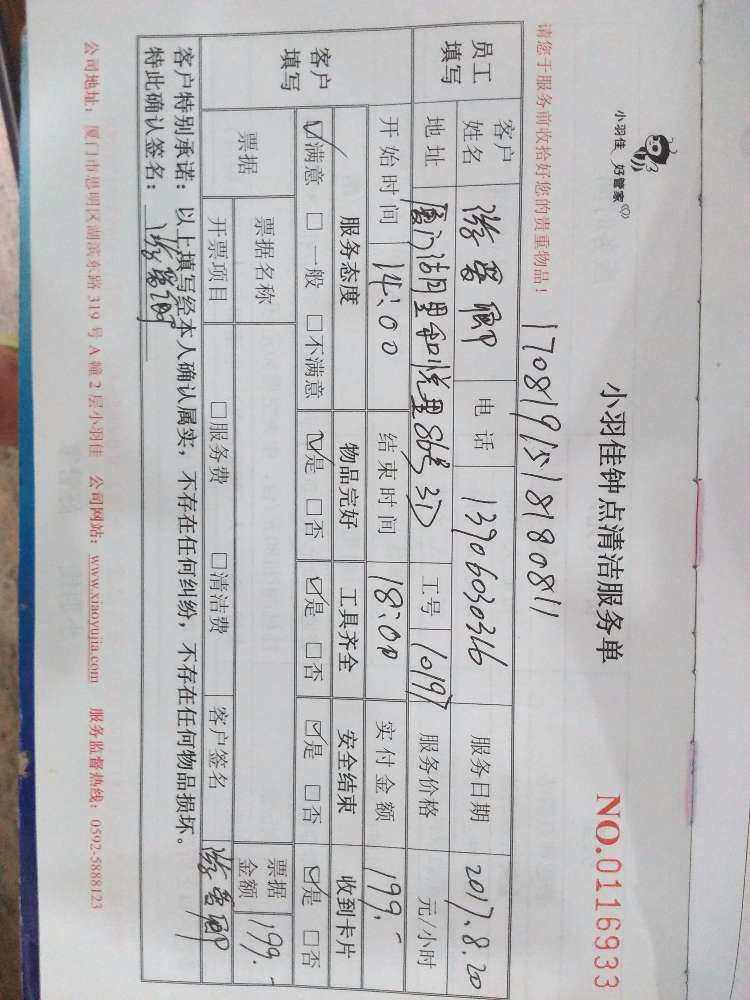 小羽佳 好管家
小羽佳钟点清洁服务单
NO.0116933
请您于服务前收拾好您的贵重物品！
员工填写 客户姓名 电话 13906030316 服务日期 2017.8.20
地址 厦门湖里和悦里86号3D 工号 10197 服务价格 元/小时
客户填写 开始时间 14:00 结束时间 18:00 实付金额 199.-
服务态度 物品完好 工具齐全 安全结束 收到卡片
☑满意 □一般 □不满意 ☑是 □否 ☑是 □否 ☑是 □否 ☑是 □否
票据 票据名称 票据金额 199.-
开票项目 □服务费 □清洁费 客户签名
客户特别承诺：以上填写经本人确认属实，不存在任何纠纷，不存在任何物品损坏。
特此确认签名：
公司地址：厦门市思明区湖滨东路319号A幢2层小羽佳 公司网站：www.xiaoyujia.com 服务监督热线：0592-5888123